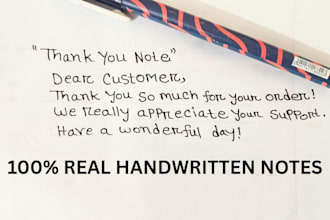 "Thank You Note"
Dear Customer,
Thank you so much for your order!
We Really appreciate your support.
Have a wonderful day!
100% REAL HANDWRITTEN NOTES